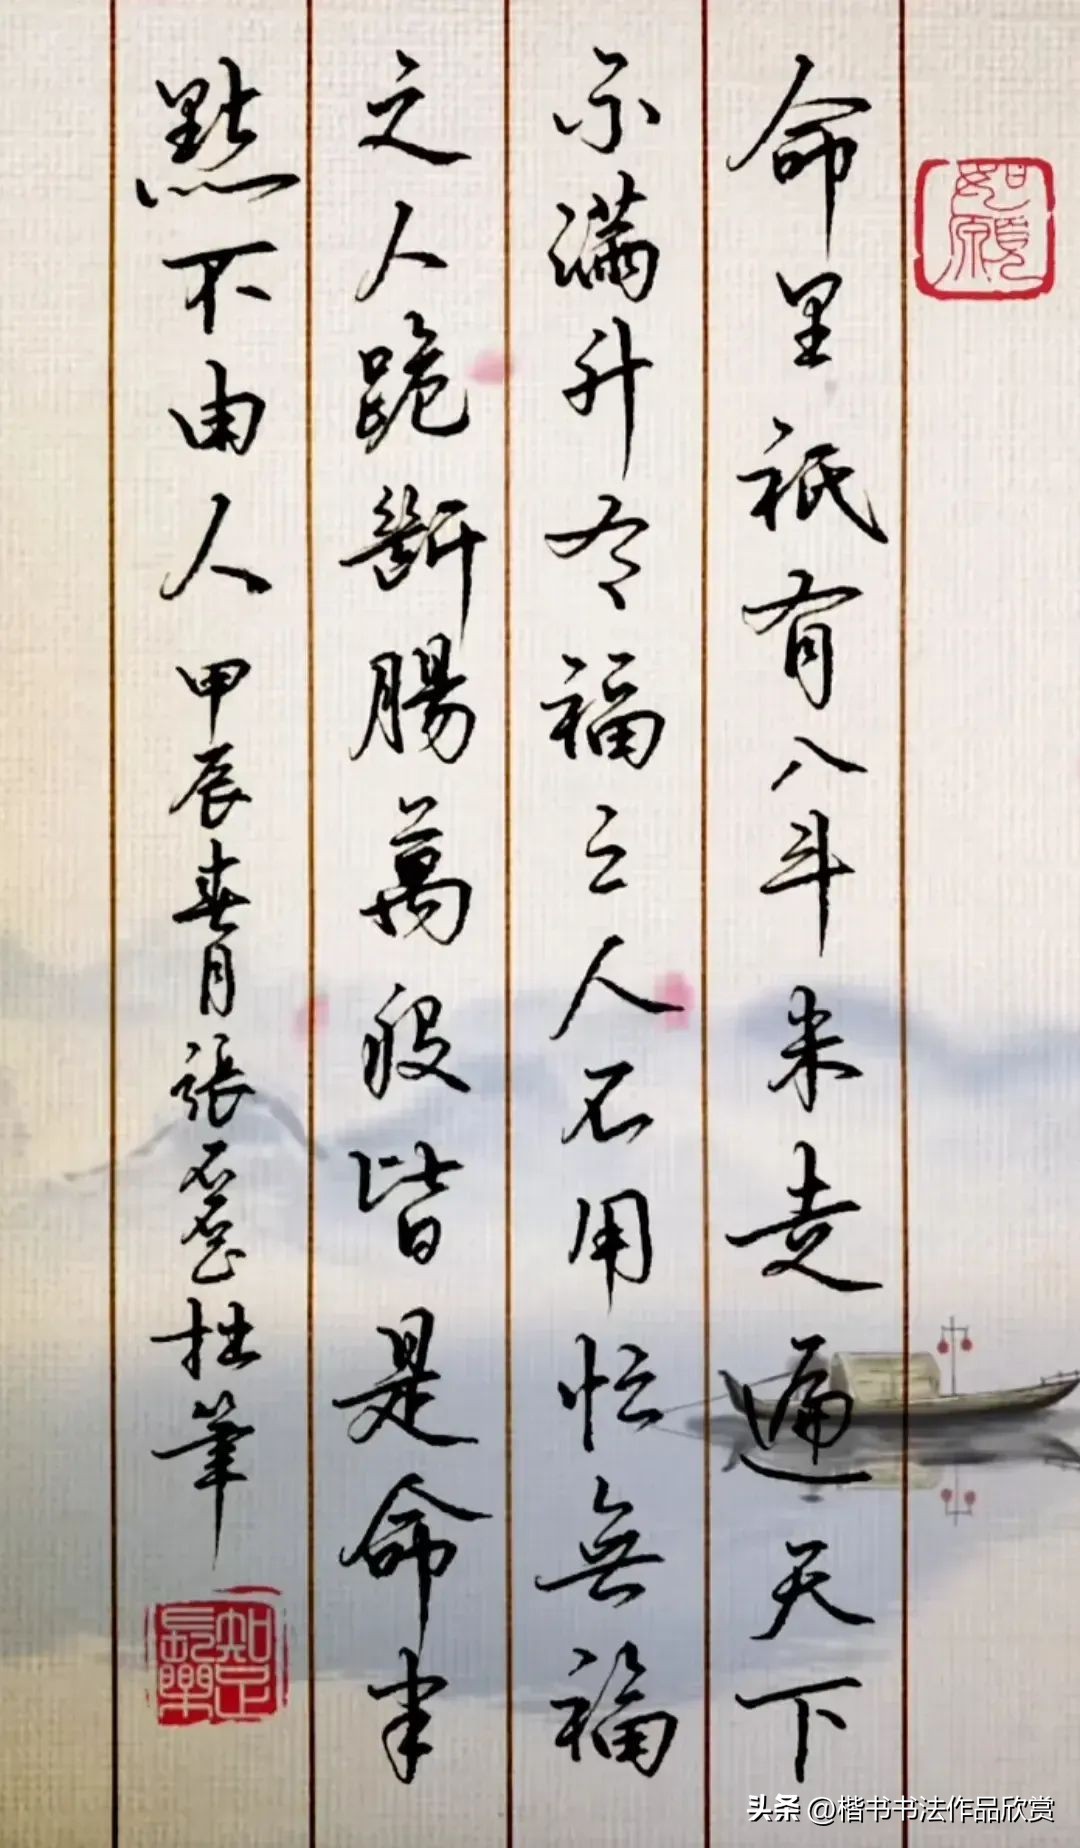 如願
命里祇有八斗米走遍天下
不滿升有福之人不用忙無福
之人跪斷腸萬般皆是命半
點不由人 甲辰春月張石拙筆
知足長樂
头条 @楷书书法作品欣赏